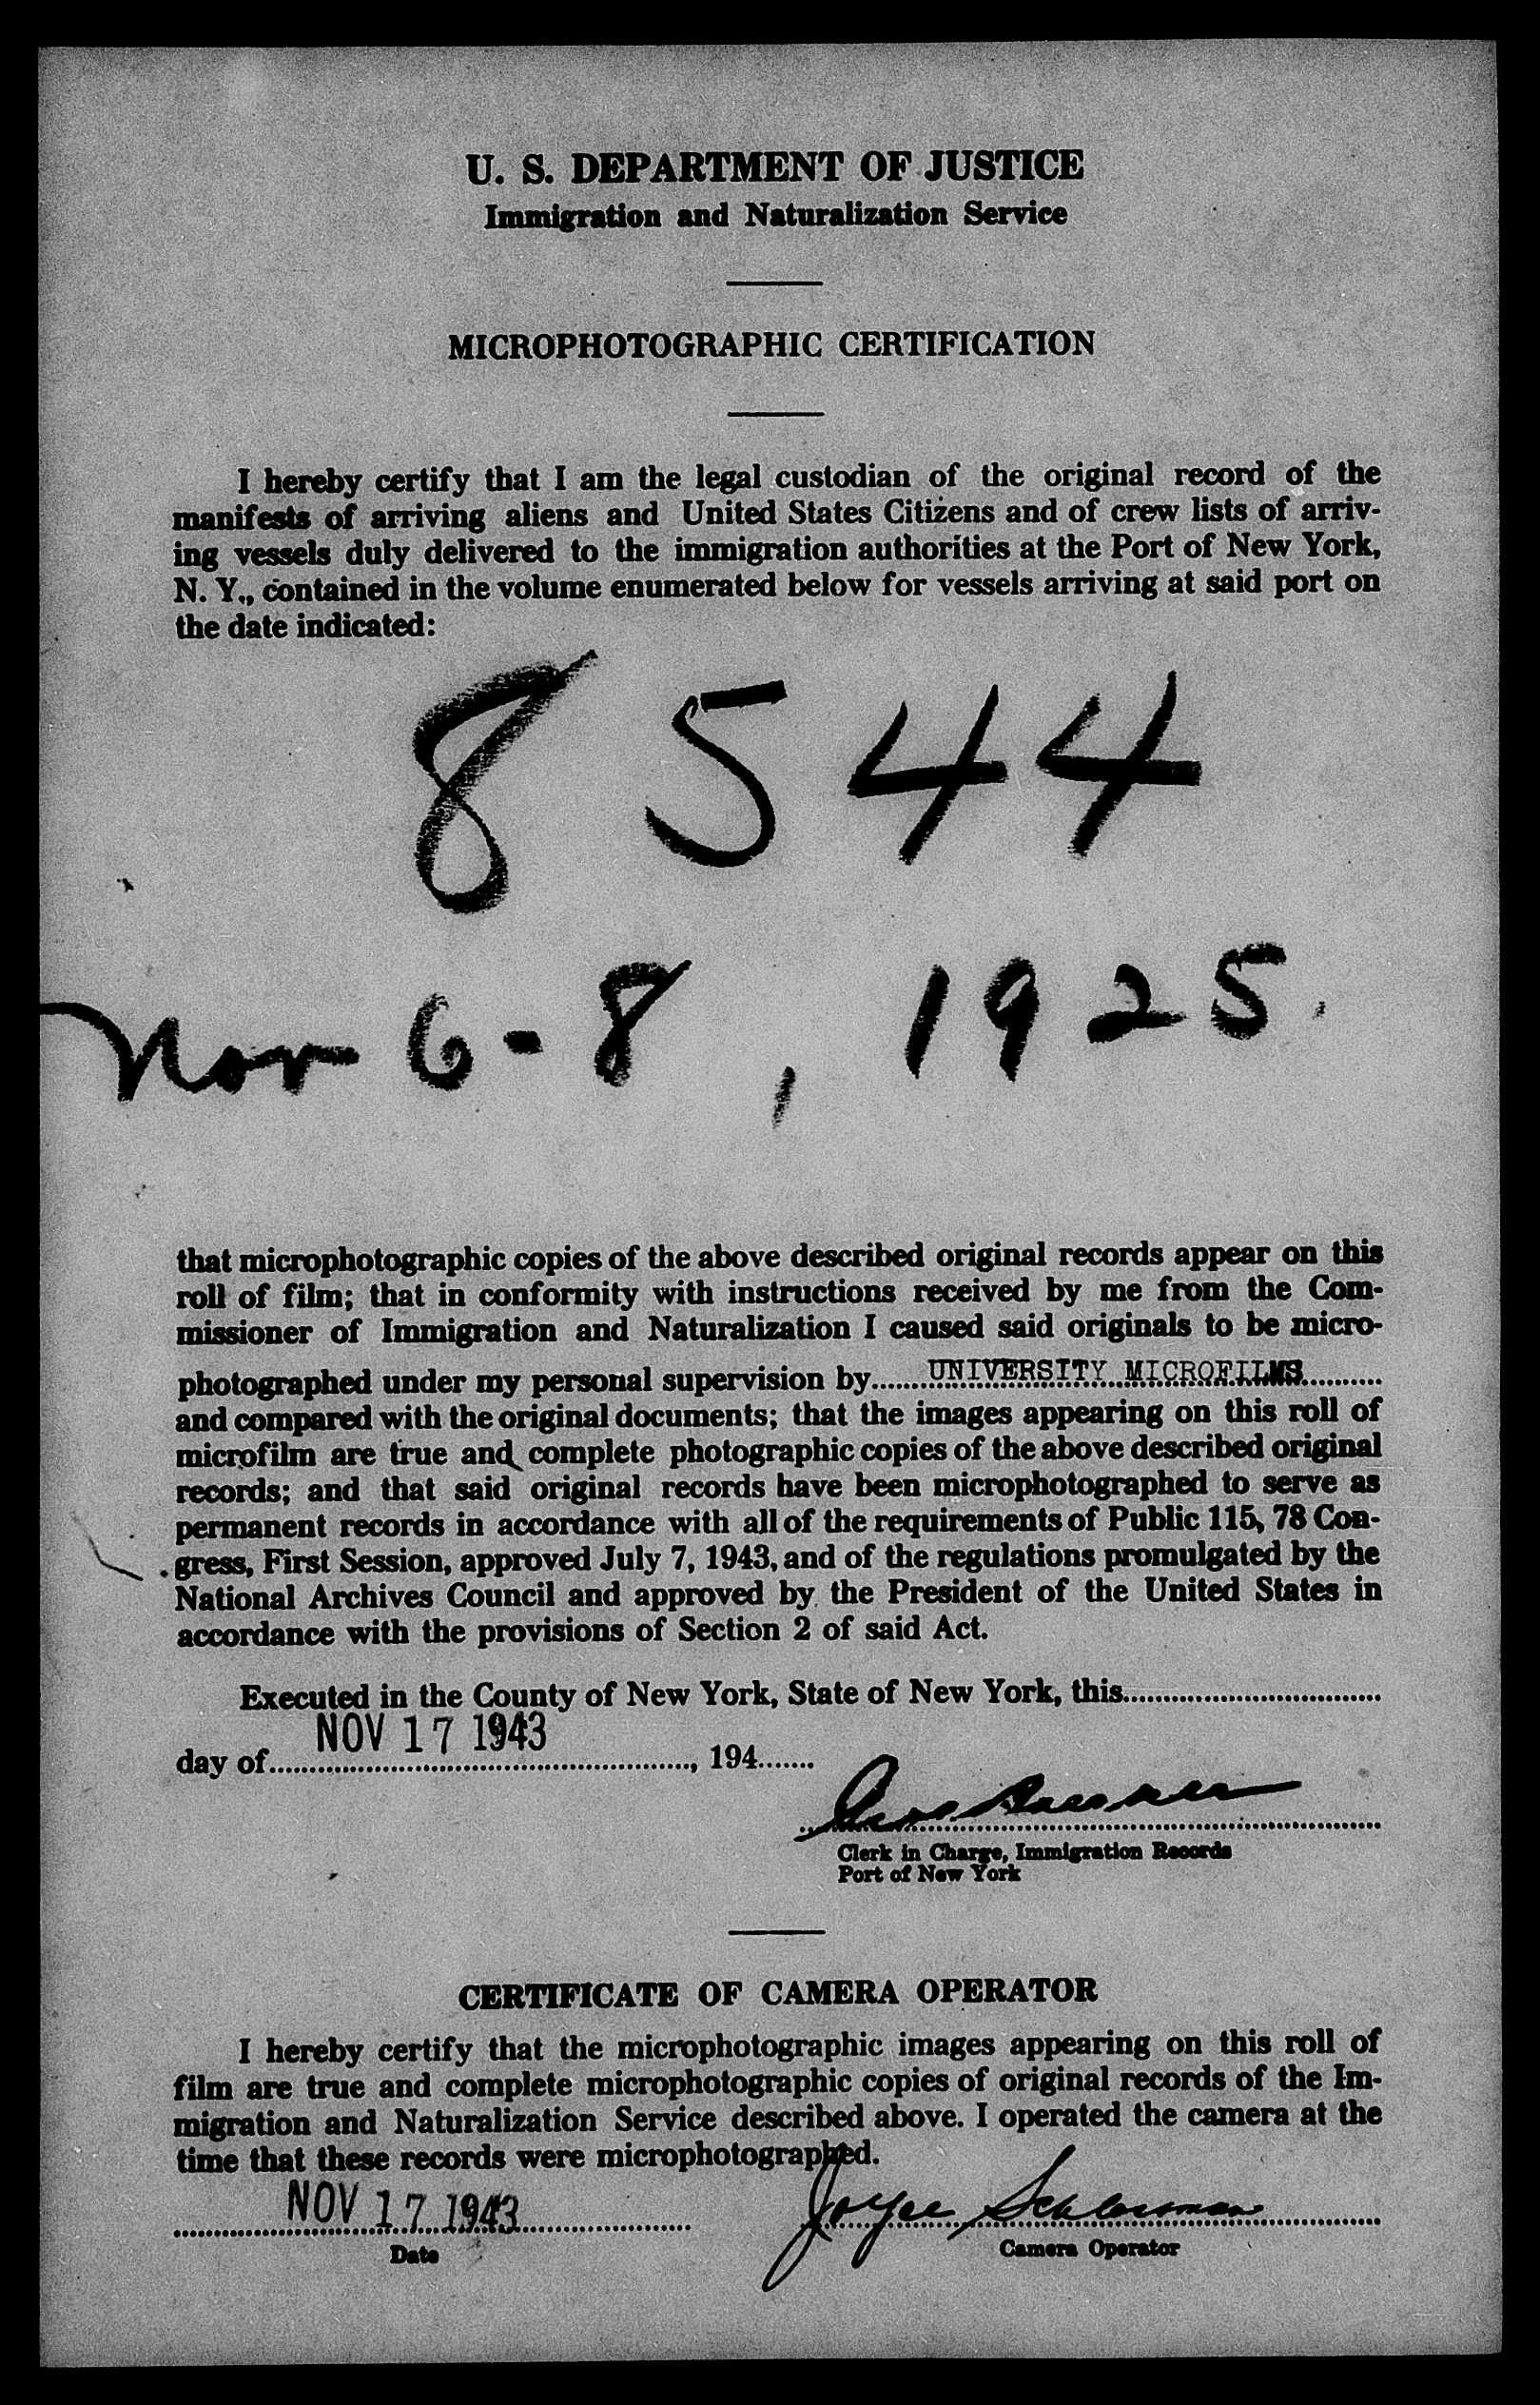 U. S. DEPARTMENT OF JUSTICE
Immigration and Naturalization Service
MICROPHOTOGRAPHIC CERTIFICATION
I hereby certify that I am the legal custodian of the original record of the
manifests of arriving aliens and United States Citizens and of crew lists of arriv-
ing vessels duly delivered to the immigration authorities at the Port of New York,
N. Y., contained in the volume enumerated below for vessels arriving at said port on
the date indicated:
8544
Nov 6-8, 1925.
that microphotographic copies of the above described original records appear on this
roll of film; that in conformity with instructions received by me from the Com-
missioner of Immigration and Naturalization I caused said originals to be micro-
photographed under my personal supervision by UNIVERSITY MICROFILMS
and compared with the original documents; that the images appearing on this roll of
microfilm are true and complete photographic copies of the above described original
records; and that said original records have been microphotographed to serve as
permanent records in accordance with all of the requirements of Public 115, 78 Con-
gress, First Session, approved July 7, 1943, and of the regulations promulgated by the
National Archives Council and approved by the President of the United States in
accordance with the provisions of Section 2 of said Act.
Executed in the County of New York, State of New York, this
NOV 17 1943
day of , 194
Clerk in Charge, Immigration Records
Port of New York
CERTIFICATE OF CAMERA OPERATOR
I hereby certify that the microphotographic images appearing on this roll of
film are true and complete microphotographic copies of original records of the Im-
migration and Naturalization Service described above. I operated the camera at the
time that these records were microphotographed.
NOV 17 1943 Joyce
Date Camera Operator